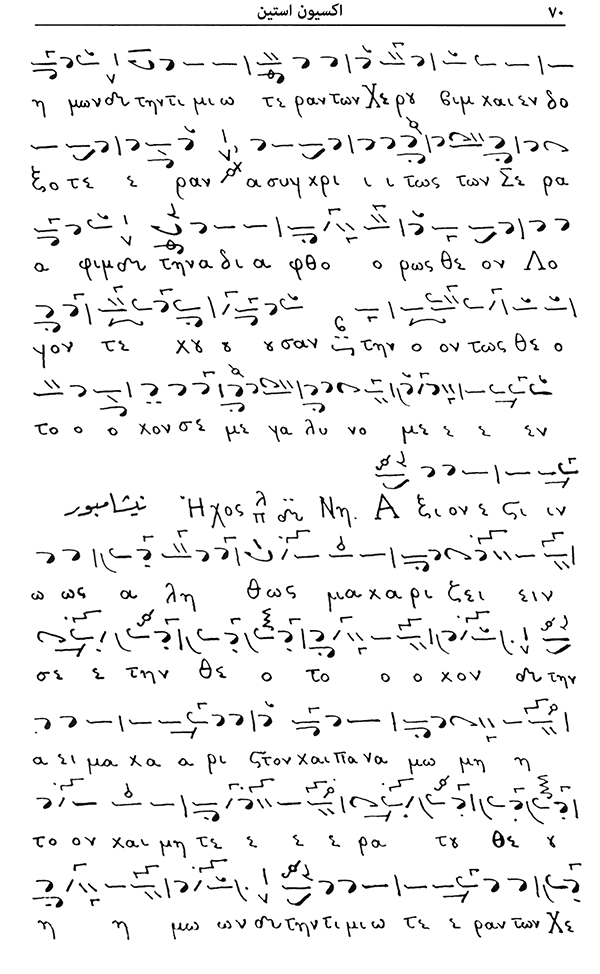 ٧٠ اكسيون استين
η μων την τι μι ω τε ραν των Χε ρȣ βιμ και εν δο
ξο τε ε ραν α συγ κρι ι ι τως των Σε ρα
α φιμ την α δι α φθο ο ρως θε ον Λο
γον τε κȣ ȣ ȣ σαν την ο ον τως θε ο
το ο ο κον σε με γα λυ νο με ε ε εν
نيشامبور Ήχος λ π Νη. Α ξι ον ε ϛι ιν
ω ως α λη θως μα κα ρι ζει ειν
σε ε την θε ο το ο ο κον την
α ει μα κα α ρι ϛον και πα να μω μη η
το ον και μη τε ε ε ε ρα τȣ θε ȣ
η η μω ων την τι μι ω τε ε ραν των Χε